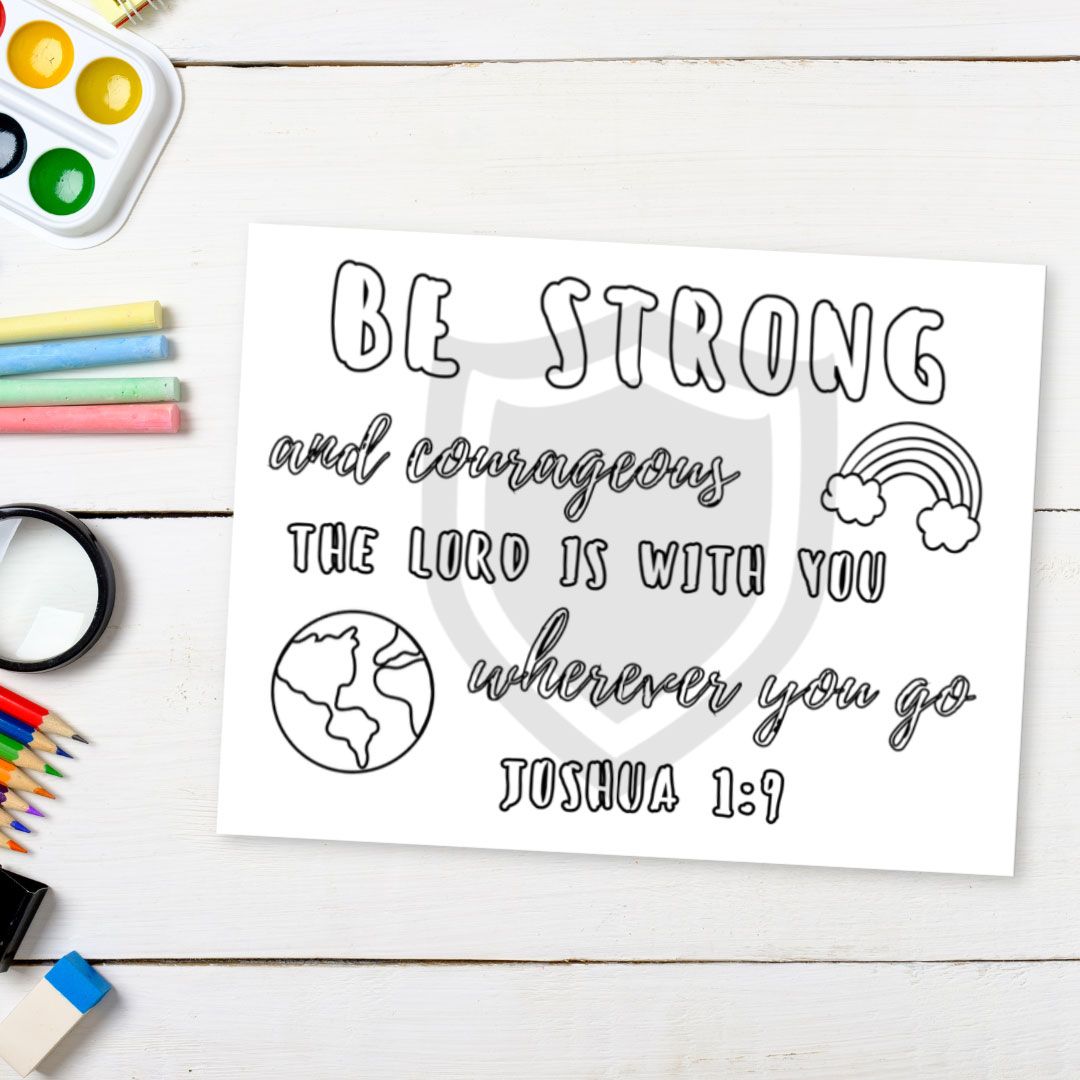 BE STRONG
and courageous
THE LORD IS WITH YOU
wherever you go
JOSHUA 1:9